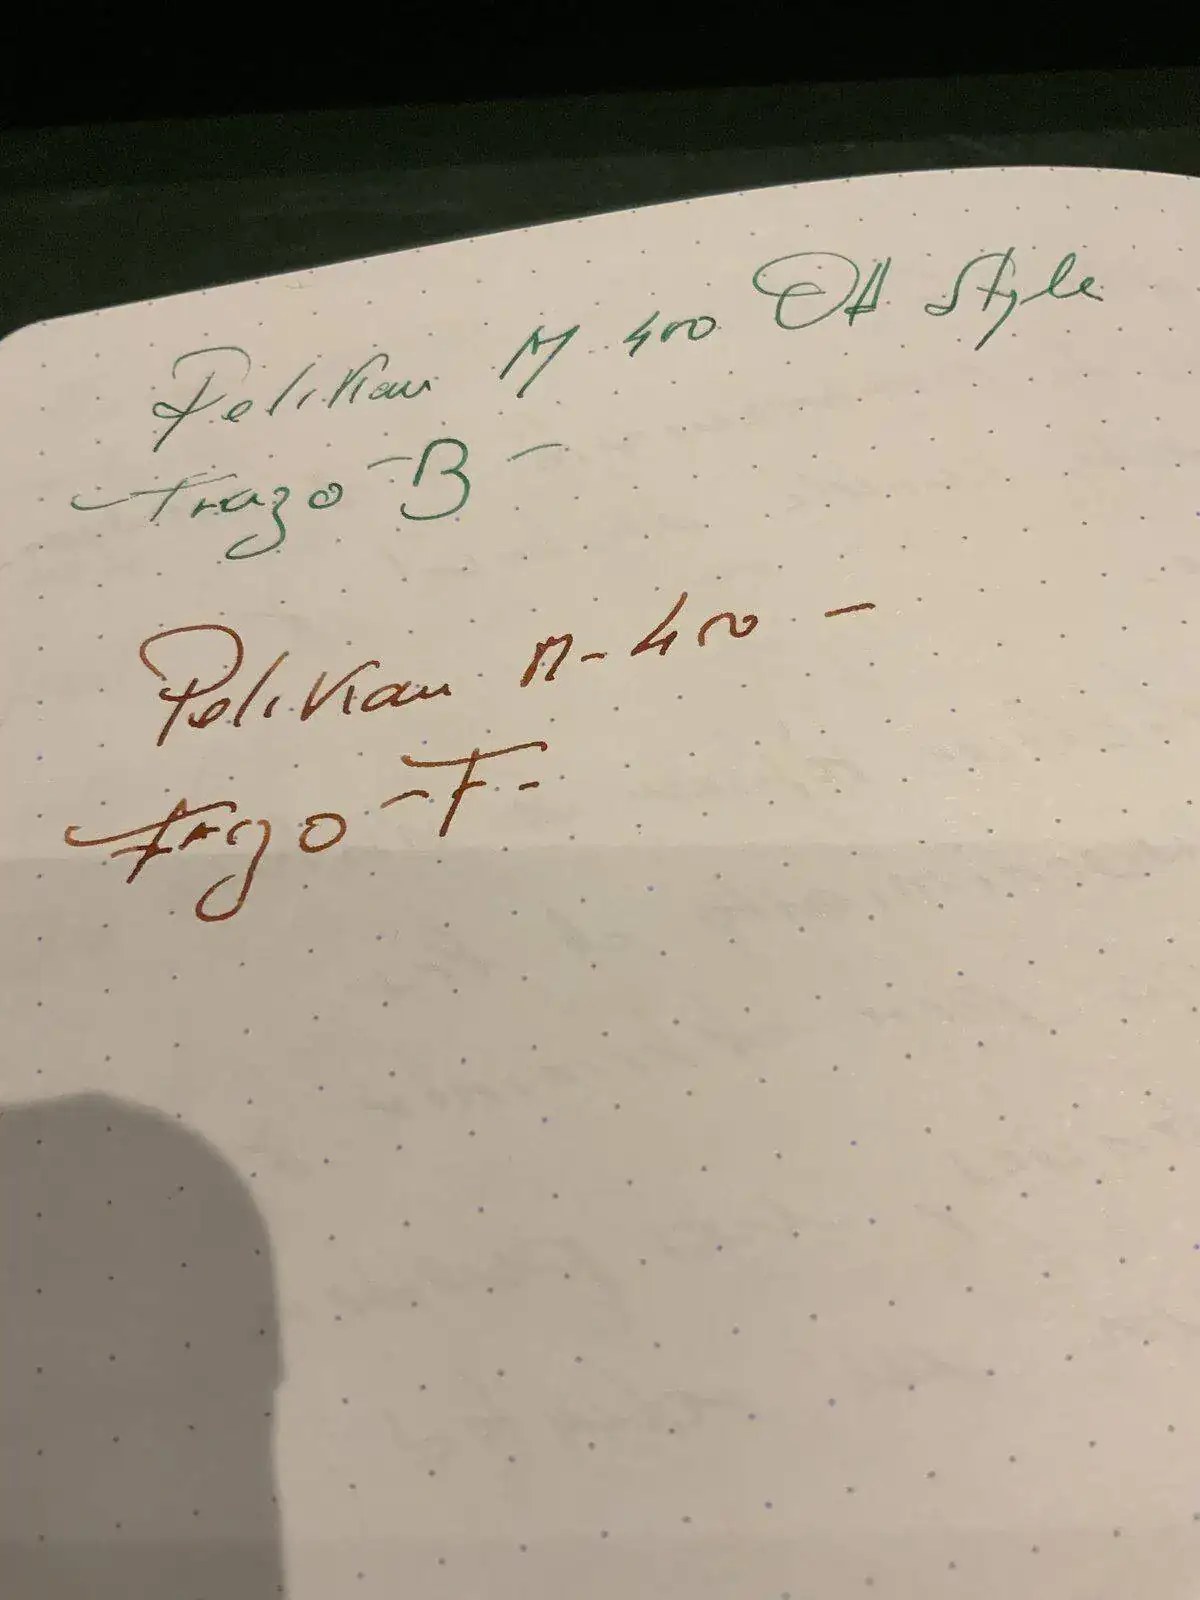 Pelikan M 400 Old Style
Trazo - B -
Pelikan M-400 -
Trazo - F -